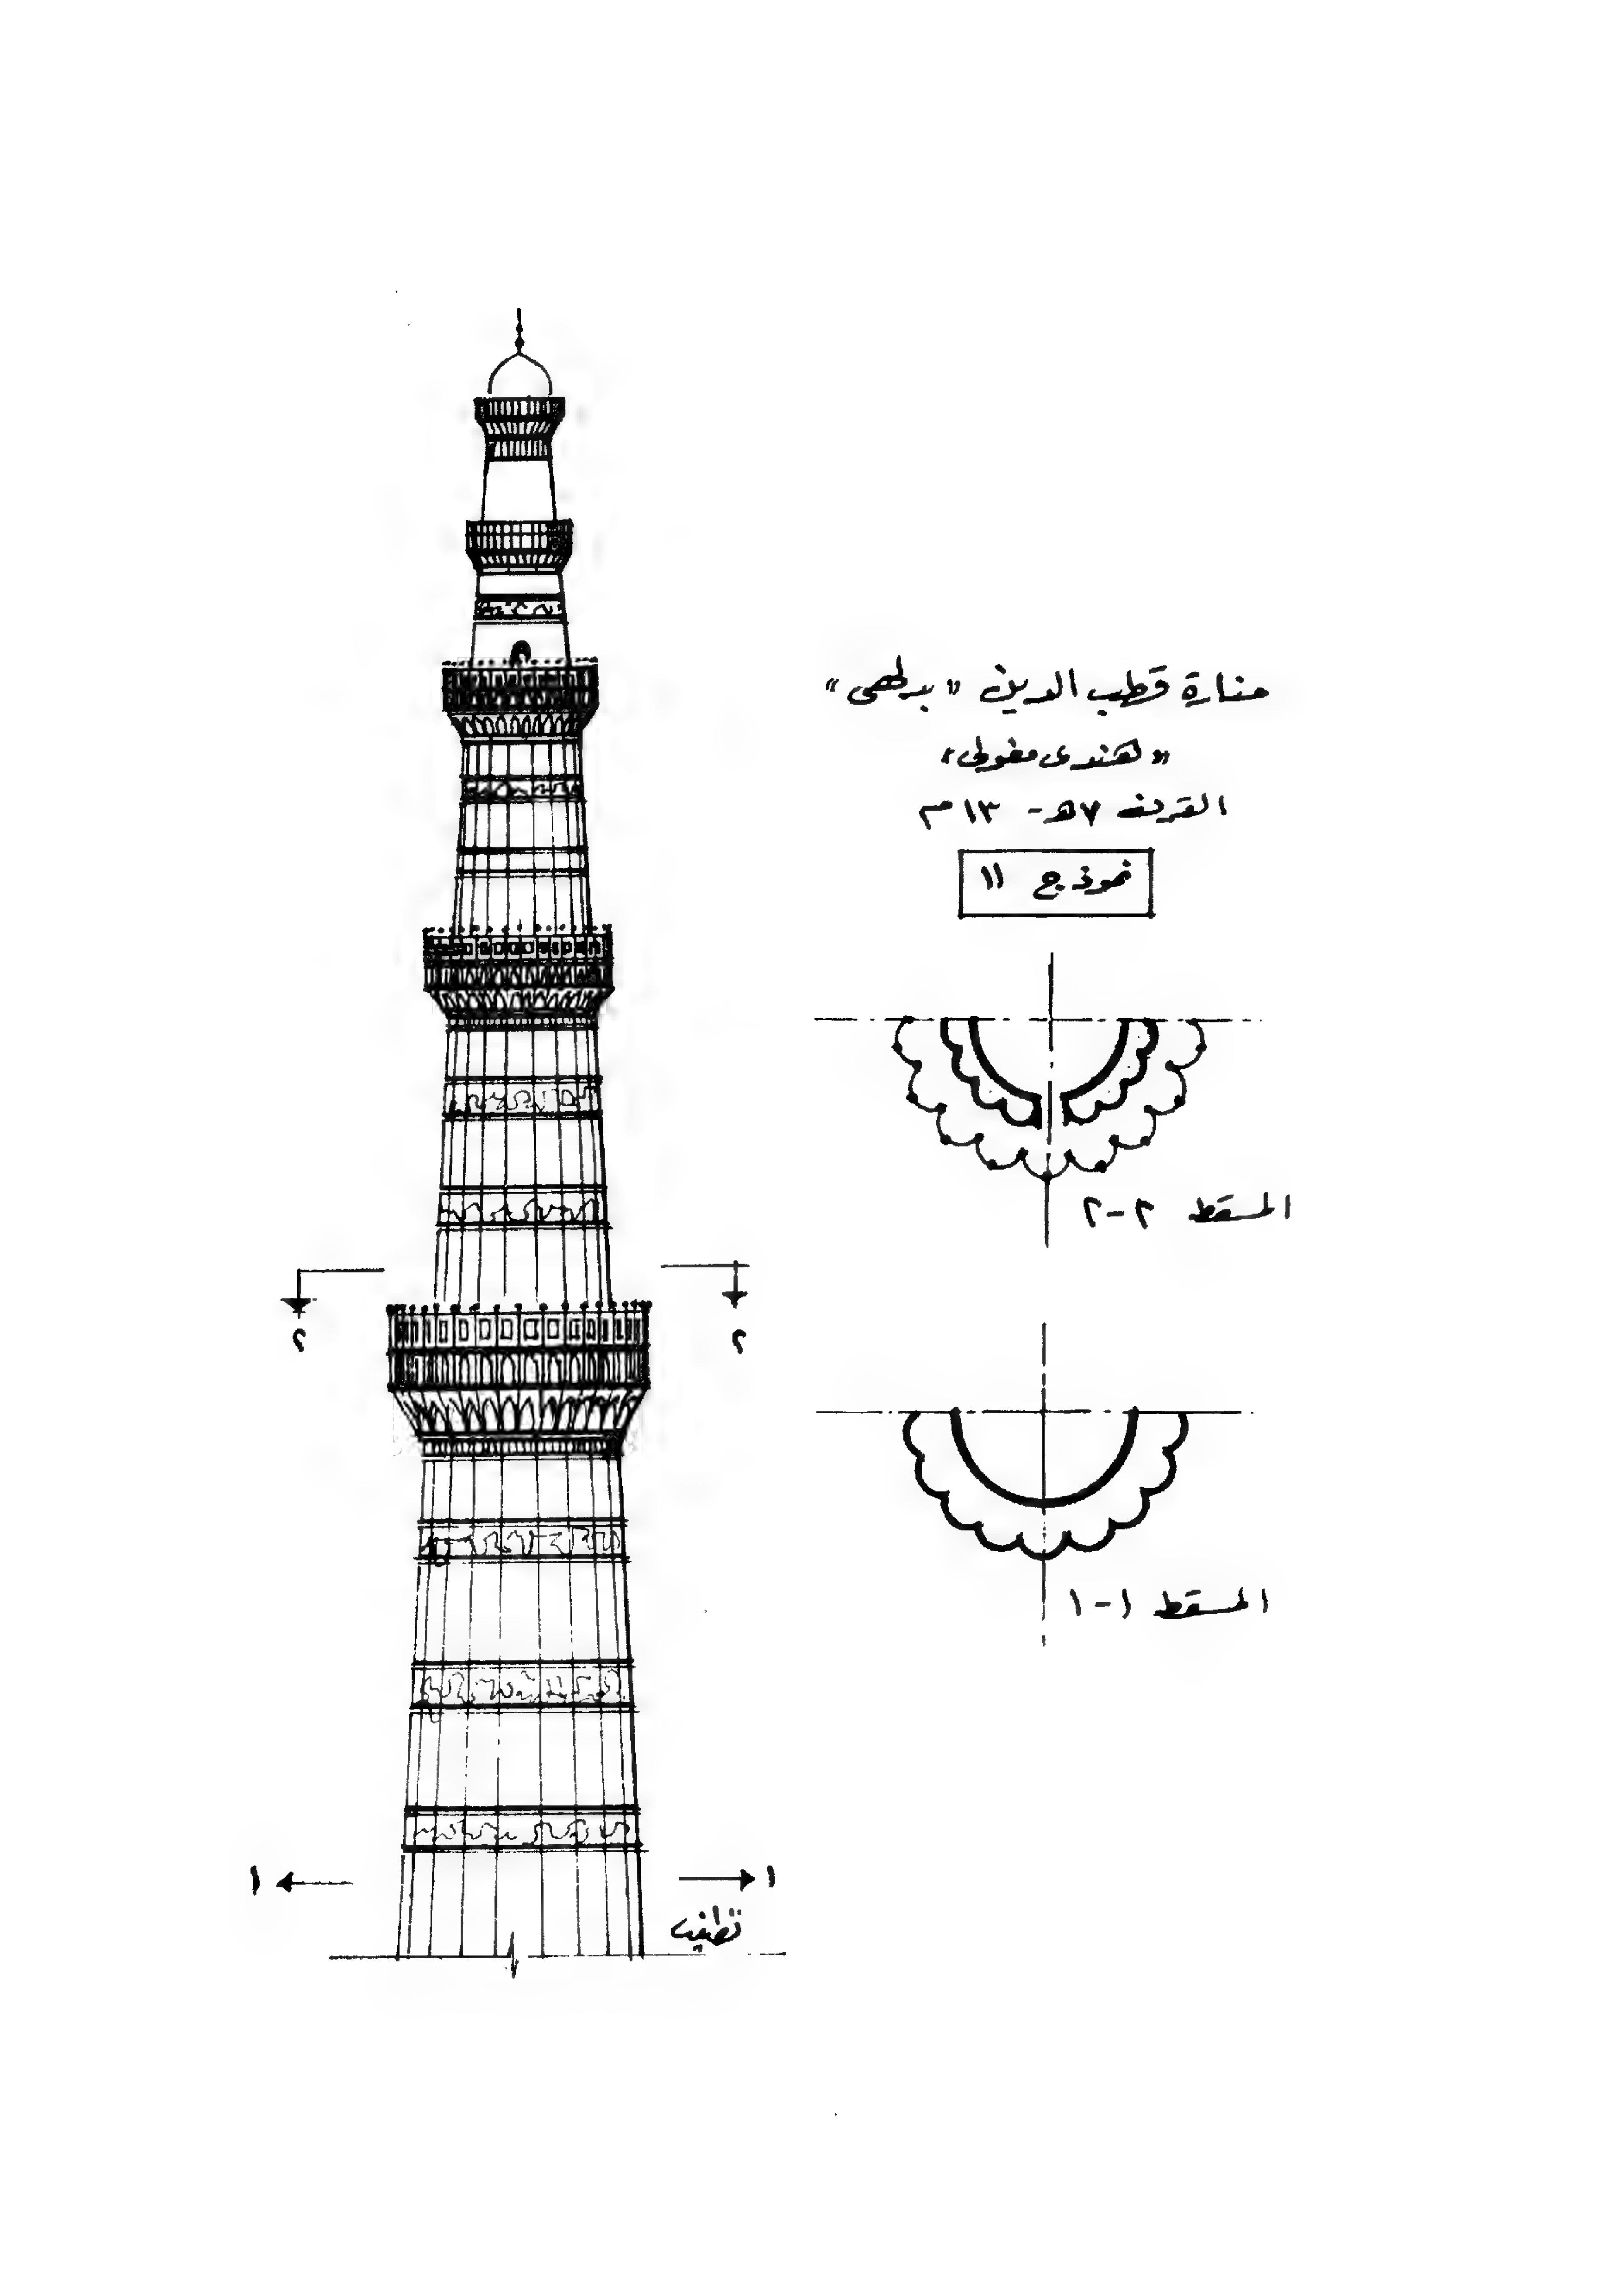 منارة قطب الدين "بدلهى"
"هندى مغولى"
القرن ٧هـ - ١٣م
نموذج ١١
المسقط ٢-٢
٢ ٢
المسقط ١-١
١ ١